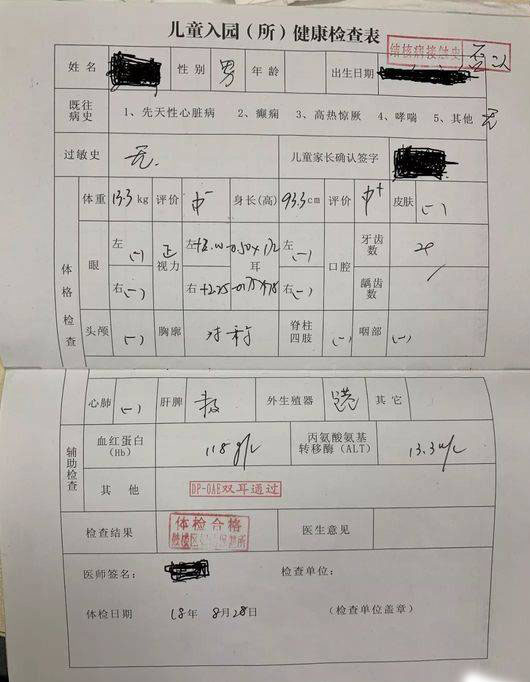 儿童入园（所）健康检查表
结核病接触史 否认
姓名 性别 男 年龄 出生日期
既往病史 1、先天性心脏病 2、癫痫 3、高热惊厥 4、哮喘 5、其他 无
过敏史 无. 儿童家长确认签字
体格检查
体重 13.3 kg 评价 中- 身长(高) 93.3 cm 评价 中+ 皮肤 (-)
眼 左 (-) 正 视力 左 耳 左 (-) 口腔 牙齿数
右 (-) 右 右 (-) 龋齿数 /
头颅 (-) 胸廓 对称 脊柱四肢 (-) 咽部 (-)
辅助检查
心肺 (-) 肝脾 外生殖器 其它
血红蛋白（Hb） 118 g/L 丙氨酸氨基转移酶（ALT） 13.3 u/L
其他 DP-OAE双耳通过
检查结果 体检合格 医生意见
医师签名： 检查单位：
体检日期 18年 8月28日 （检查单位盖章）